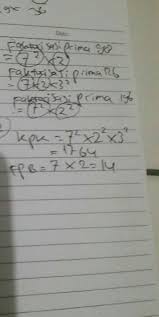 Faktorisasi prima 98
= 7² × 2
Faktorisasi prima 126
= 7 × 2 × 3²
Faktorisasi prima 196
= 7² × 2²
KPK = 7² × 2² × 3²
= 1764
FPB = 7 × 2 = 14